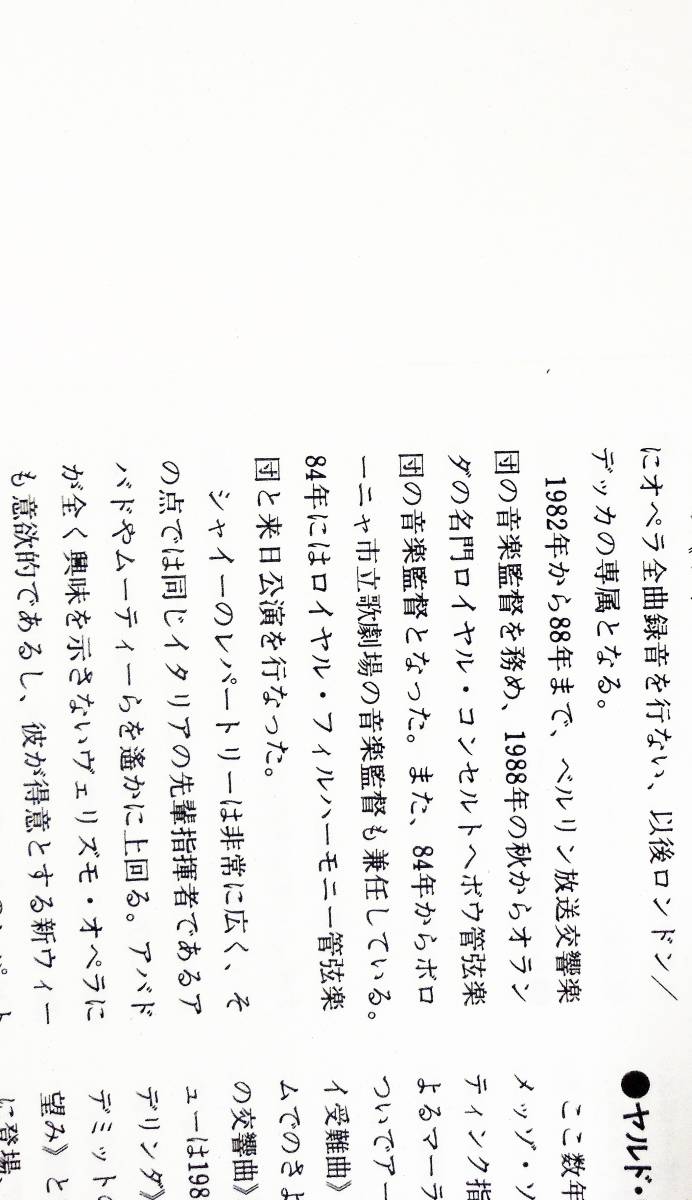 にオペラ全曲録音を行ない、以後ロンドン／
デッカの専属となる。
1982年から88年まで、ベルリン放送交響楽
団の音楽監督を務め、1988年の秋からオラン
ダの名門ロイヤル・コンセルトヘボウ管弦楽
団の音楽監督となった。また、84年からボロ
ーニャ市立歌劇場の音楽監督も兼任している。
84年にはロイヤル・フィルハーモニー管弦楽
団と来日公演を行なった。
シャイーのレパートリーは非常に広く、そ
の点では同じイタリアの先輩指揮者であるア
バドやムーティーらを遙かに上回る。アバド
が全く興味を示さないヴェリズモ・オペラに
も意欲的であるし、彼が得意とする新ウィー
●ヤルド・
ここ数年
メッゾ・ソ
ティンク指
よるマーラ
ついでアー
イ受難曲》
ムでのさよ
の交響曲》
ューは198
デリンダ》
デミットの
望み》と
に登場、